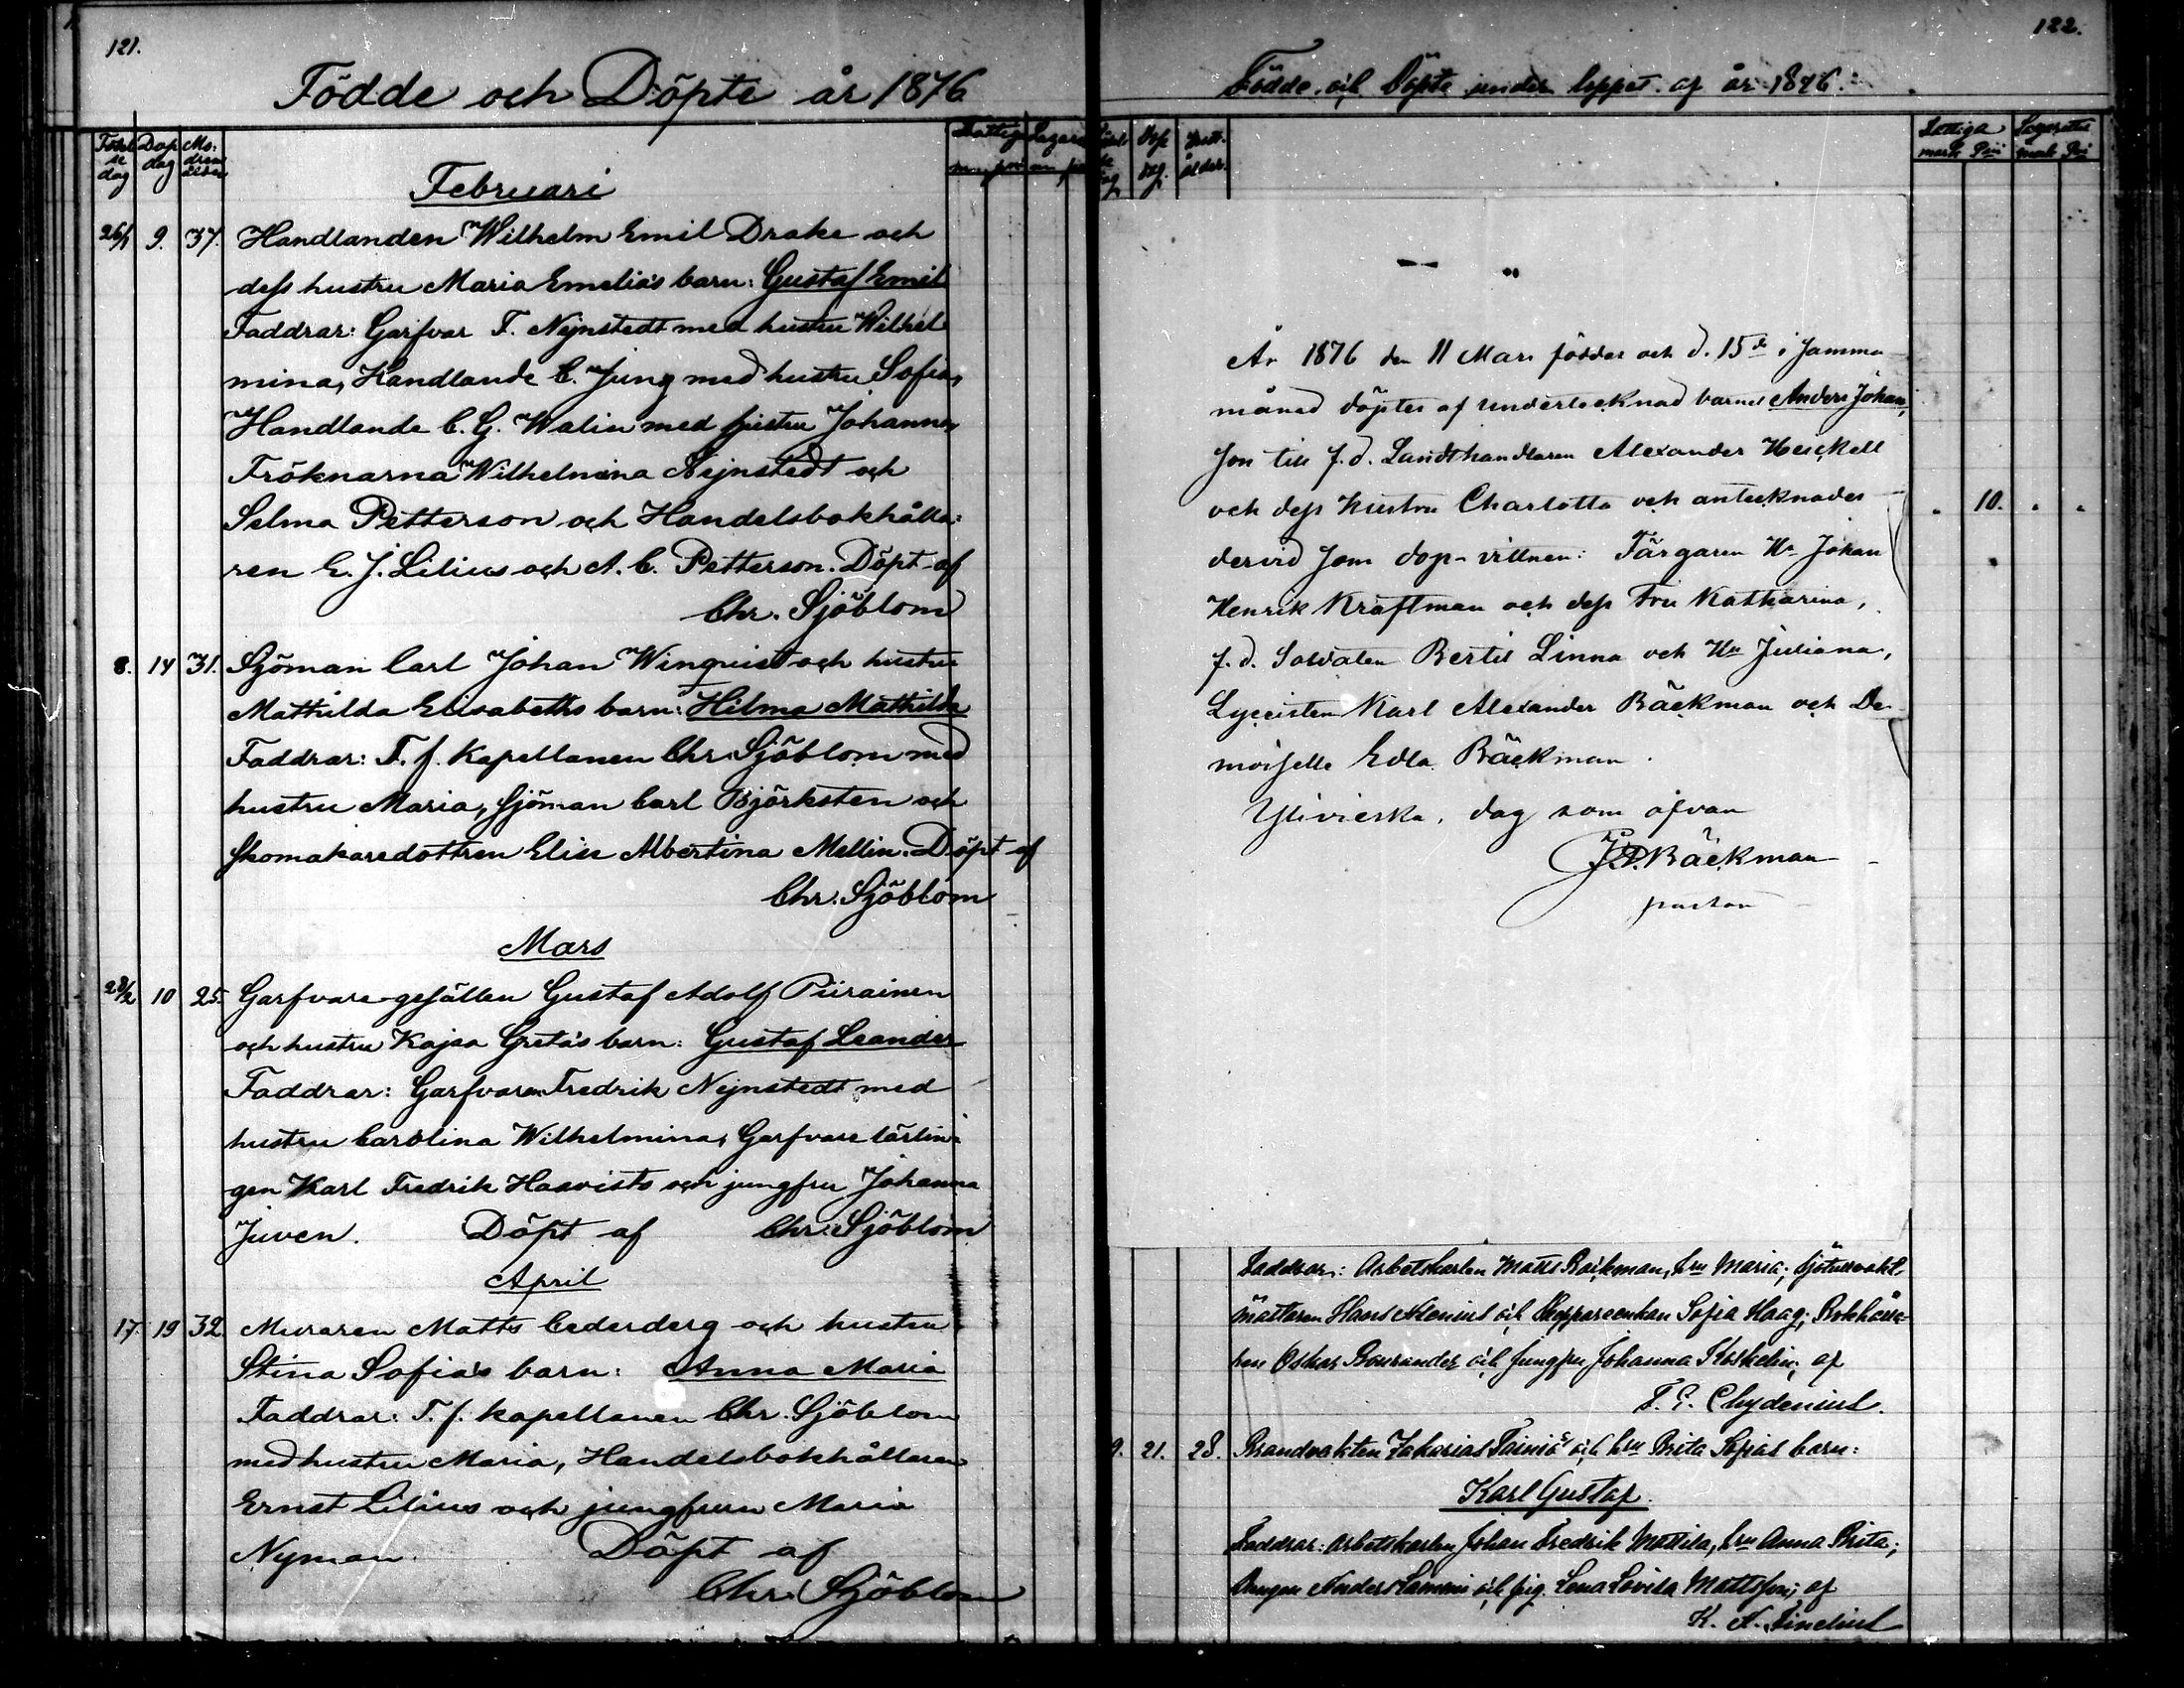 121.
Födde och Döpte år 1876
Födel se dag
Dop dag
Mo: drens ålder
Fattig
Lazare
m. pi m p
Februari
26/1 9. 37. Handlanden Wilhelm Emil Drake och
dess hustru Maria Emelia's barn: Gustaf Emil
Faddrar: Garfvar F. Nejnstedt med hustru Wilhel
mina, Handlande C. Jung med hustru Sofia,
Handlande C. G. Walin med hustru Johanna,
Fröknarna Wilhelmina Nejnstedt och
Selma Petterson och Handelsbokhålla:
ren E. J. Lilius och A. C. Petterson. Döpt af
Chr. Sjöblom
8. 14 31. Sjöman Carl Johan Winquist och hustru
Mathilda Elisabeths barn: Hilma Mathilda
Faddrar: T. f. Kapellanen Chr. Sjöblom med
hustru Maria, Sjöman Carl Björksten och
Skomakaredottren Elise Albertina Mellin. Döpt af
Chr. Sjöblom
Mars
28/2 10 25. Garfvare-gesällen Gustaf Adolf Piirainen
och hustru Kajsa Greta's barn: Gustaf Leander
Faddrar: Garfvaren Fredrik Nejnstedt med
hustru Carolina Wilhelmina, Garfvare lärlin-
gen Karl Fredrik Haavisto och jungfru Johanna
Juven. Döpt af Chr. Sjöblom
April
17. 19 32 Muraren Matts Cederderg och hustru
Stina Sofia's barn: Anna Maria
Faddrar: T. f. kapellanen Chr. Sjöblom
med hustru Maria, Handelsbokhållaren
Ernst Lilius och jungfrun Maria
Nyman. Döpt af
Chr. Sjöblom
122.
Födde och Döpte under loppet af år 1876.
Dop dag.
ålder.
Fattiga
mark Pni
Lazarettet
mark Pni
År 1876 den 11 Mars föddes och d. 15de i samma
månad döptes af undertecknad barnet Anders Johan,
son till f. d. Landthandlaren Alexander Heickell
och dess hustru Charlotta och antecknades
10.
dervid som dop-vittnen: Färgaren Hr Johan
Henrik Kraftman och dess Fru Katharina,
f. d. Soldaten Bertil Linna och Hu Juliana,
Lyceisten Karl Alexander Bäckman och De-
moiselle Edla Bäckman.
Ylivieska, dag som ofvan
Bäckman
pastor
Faddrar: Arbetskarlen Matts Backman, hru Maria; Sjötullvakt-
mästaren Hans Alenius och Skeppareenkan Sofia Haag; Bokhålla-
ren Oskar Bonrander och jungfru Johanna Koskelin; af
F. E. Chydenius.
9. 21. 28. Brandvakten Zakarias Tainios och hru Brita Sofias barn:
Karl Gustaf.
Faddrar: Arbetskarlen Johan Fredrik Mattila, hru Anna Brita;
Drengen Anders Lammi och pig. Lena Lovisa Mattsson; af
K. A.